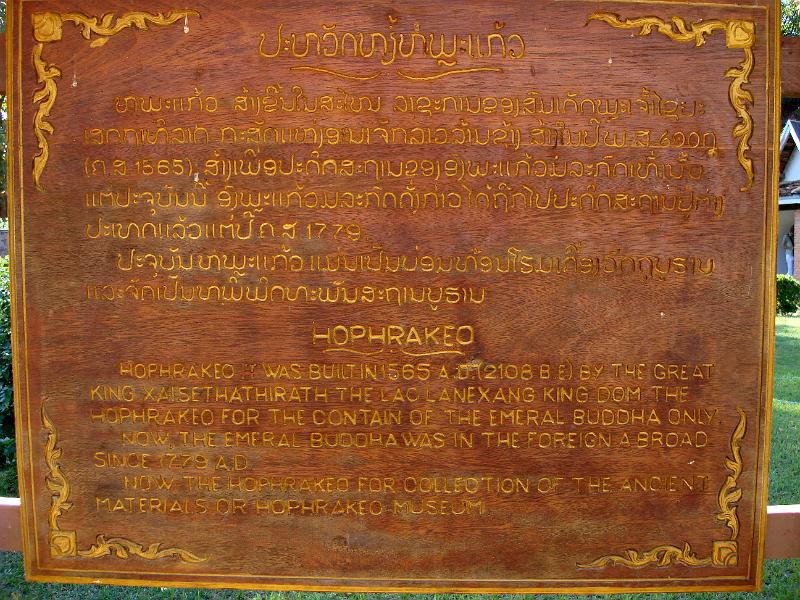 ປະຫວັດຫໍພຣະແກ້ວ
ຫໍພຣະແກ້ວ ສ້າງຂື້ນໃນສະໄໝ
(ຄ.ສ. 1565) ສ້າງເພື່ອປະດິດສະຖານຂອງອົງພຣະແກ້ວມໍລະກົດເທົ່ານັ້ນ
ແຕ່ປະຈຸບັນນີ້ ອົງພຣະແກ້ວມໍລະກົດດັ່ງກ່າວໄດ້ຖືກໄປປະດິດສະຖານຢູ່ຕ່າງ
ປະເທດແລ້ວແຕ່ປີ ຄ.ສ 1779.
ປະຈຸບັນຫໍພຣະແກ້ວ ແມ່ນເປັນບ່ອນທ້ອນໂຮມເຄື່ອງວັດຖຸບູຮານ
ແລະຈັດເປັນຫໍພິພິດທະພັນສະຖານບູຮານ
HOPHRAKEO
HOPHRAKEO IT WAS BUILT IN 1565 A.D. (2108 B.E) BY THE GREAT
KING XAISETHATHIRATH THE LAO LANEXANG KING DOM, THE
HOPHRAKEO FOR THE CONTAIN OF THE EMERAL BUDDHA ONLY.
NOW, THE EMERAL BUDDHA WAS IN THE FOREIGN A BROAD
SINCE 1779 A.D.
NOW THE HOPHRAKEO FOR COLLECTION OF THE ANCIENT
MATERIALS OR HOPHRAKEO MUSEUM.